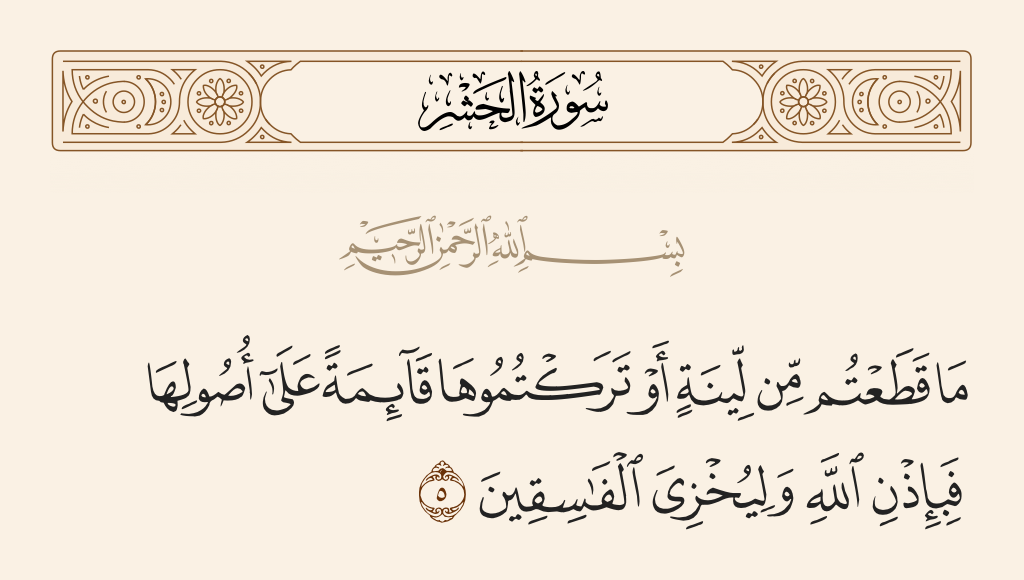 سُورَةُ الحَشْرِ
بِسْمِ ٱللَّهِ ٱلرَّحْمَٰنِ ٱلرَّحِيمِ
مَا قَطَعْتُم مِّن لِّينَةٍ أَوْ تَرَكْتُمُوهَا قَآئِمَةً عَلَىٰٓ أُصُولِهَا
فَبِإِذْنِ ٱللَّهِ وَلِيُخْزِىَ ٱلْفَـٰسِقِينَ ٥